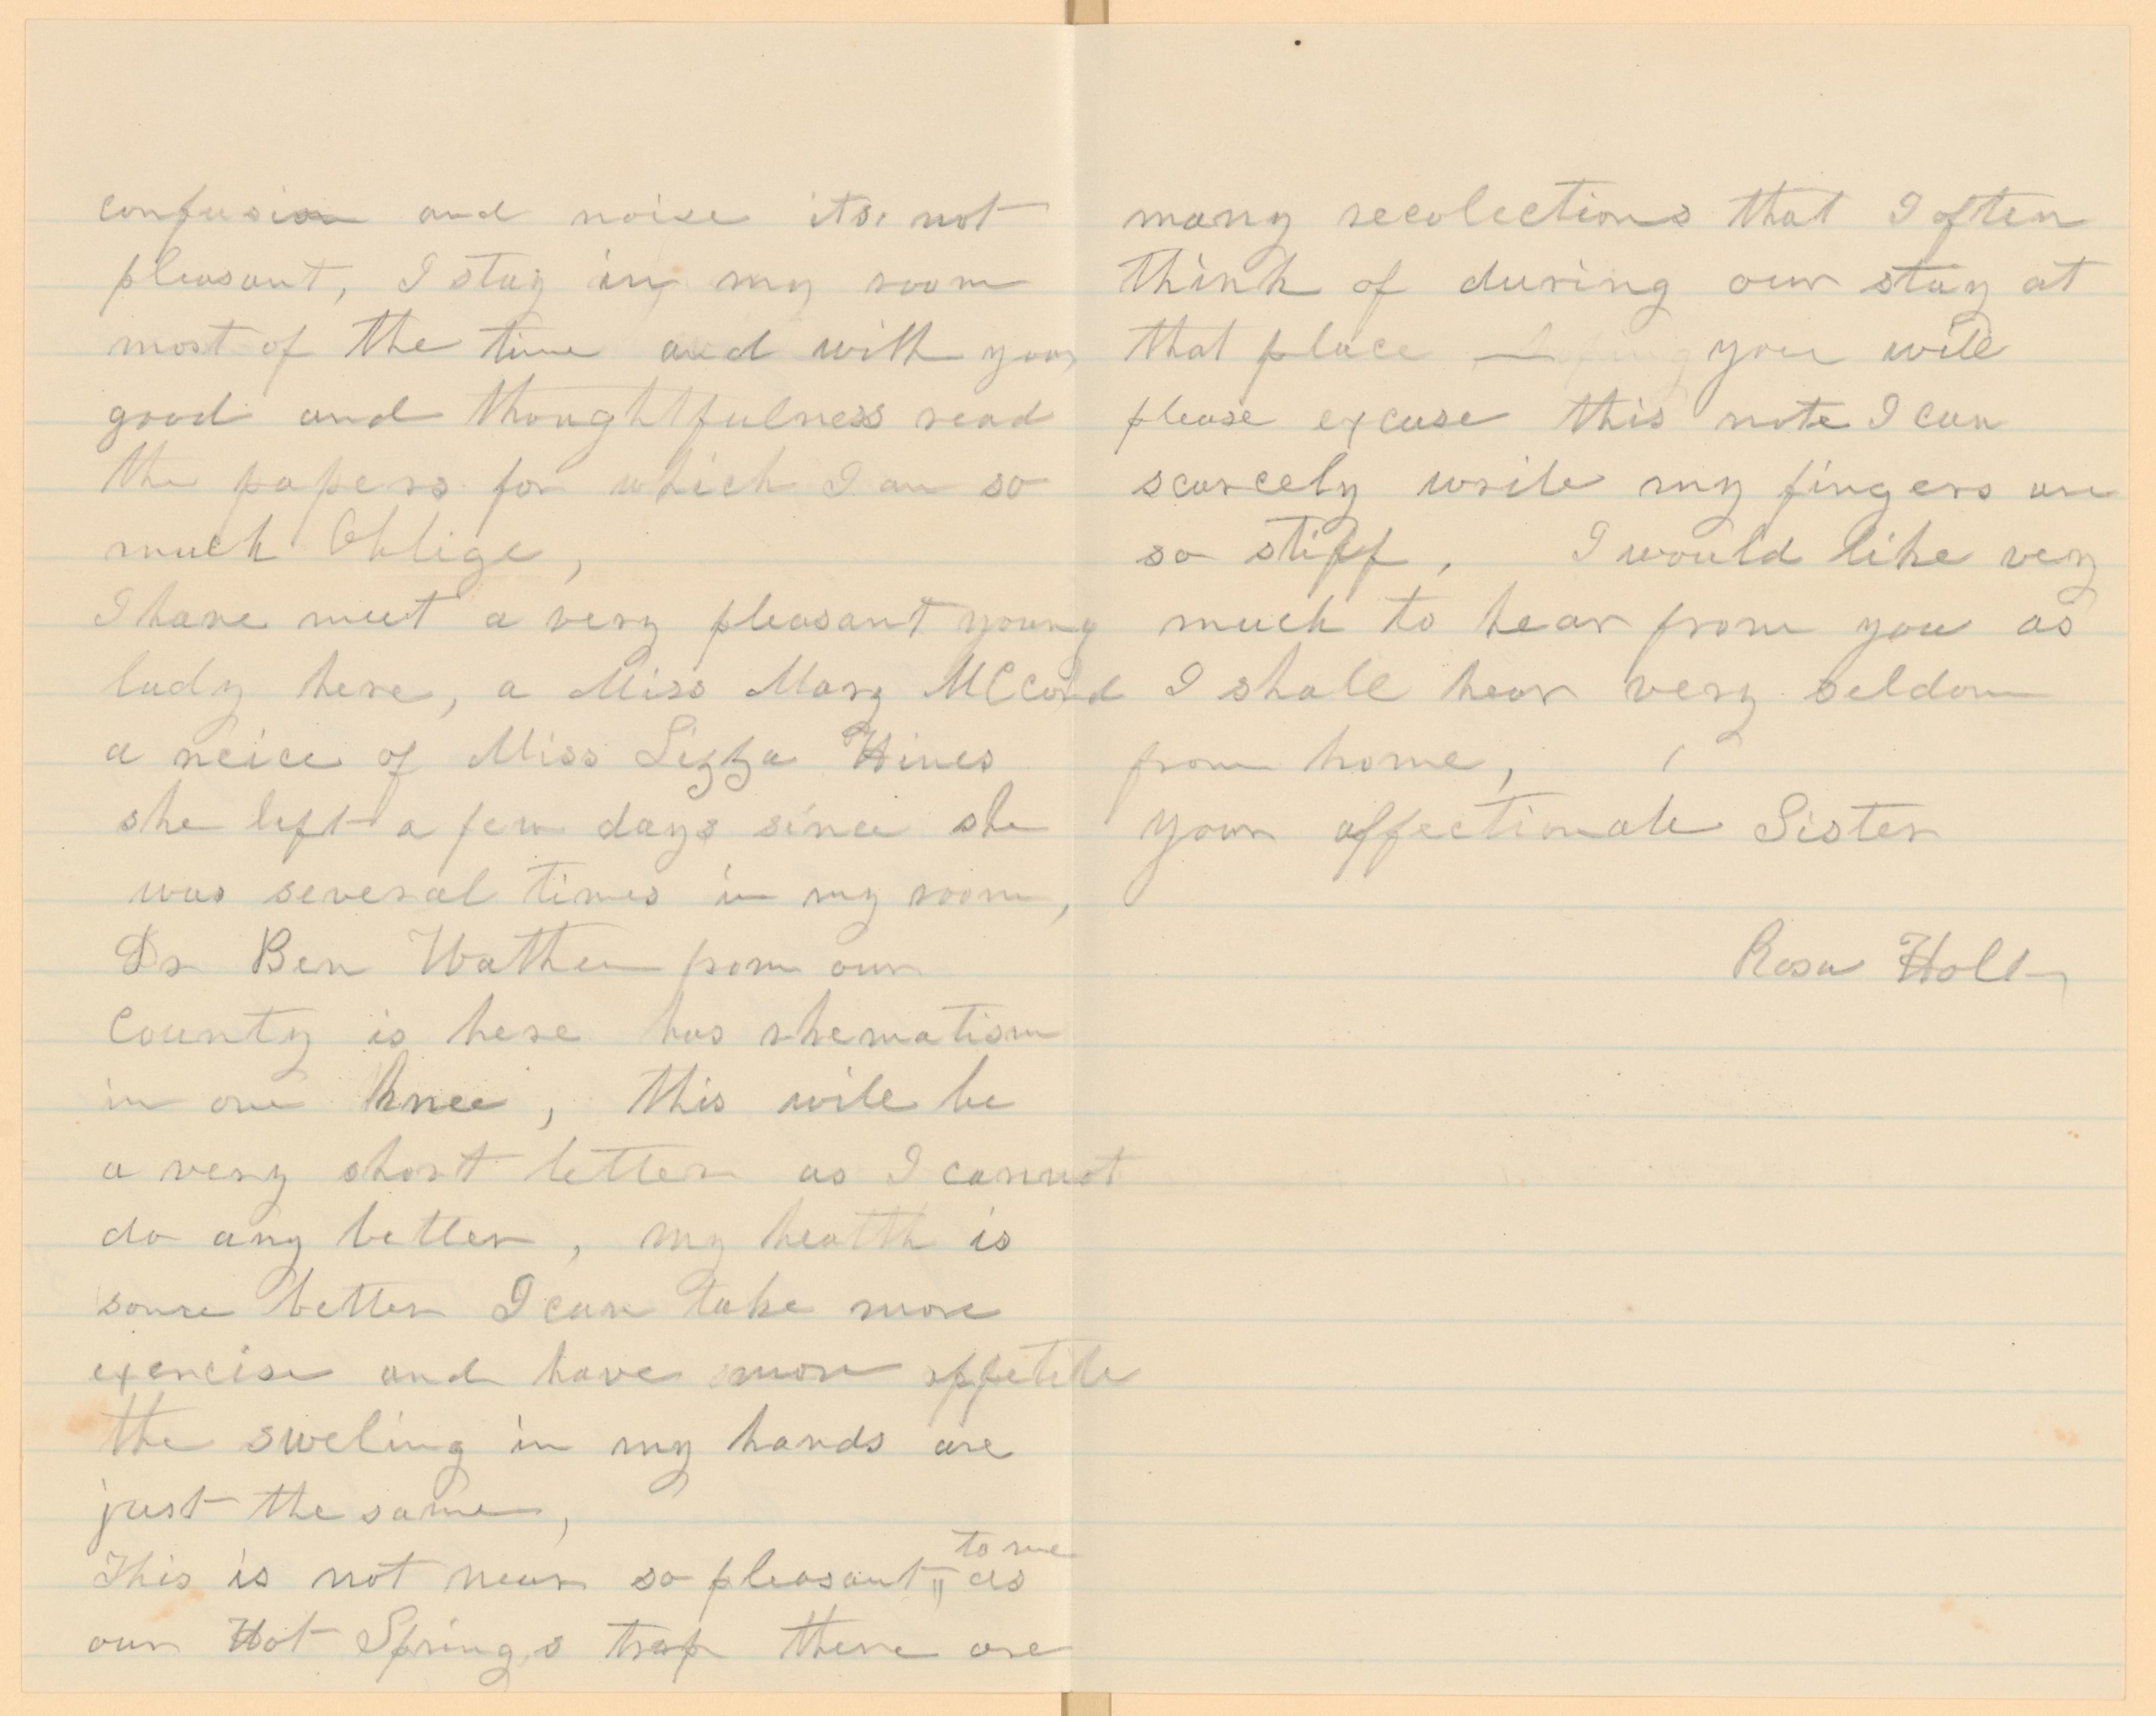 confusion and noise its not
pleasant, I stay in my room
most of the time and with your
good and thoughtfulness read
the papers for which I am so
much Oblige,
I have meet a very pleasant young
lady here, a Miss Mary McCord
a neice of Miss Lizza Hines
she left a few days since she
was several times in my room,
Dr Ben Wathen from our
County is here has rhematism
in one knee, this will be
a very short letter as I cannot
do any better, my health is
some better I can take more
exercise and have more appetite
the sweling in my hands are
just the same,
This is not near so pleasant to me as
our Hot Springs trap there are
many recolections that I often
think of during our stay at
that place you will
please excuse this note I can
scarcely write my fingers are
so stiff, I would like very
much to hear from you as
I shall hear very seldom
from home,
your affectionate Sister
Rosa Holt